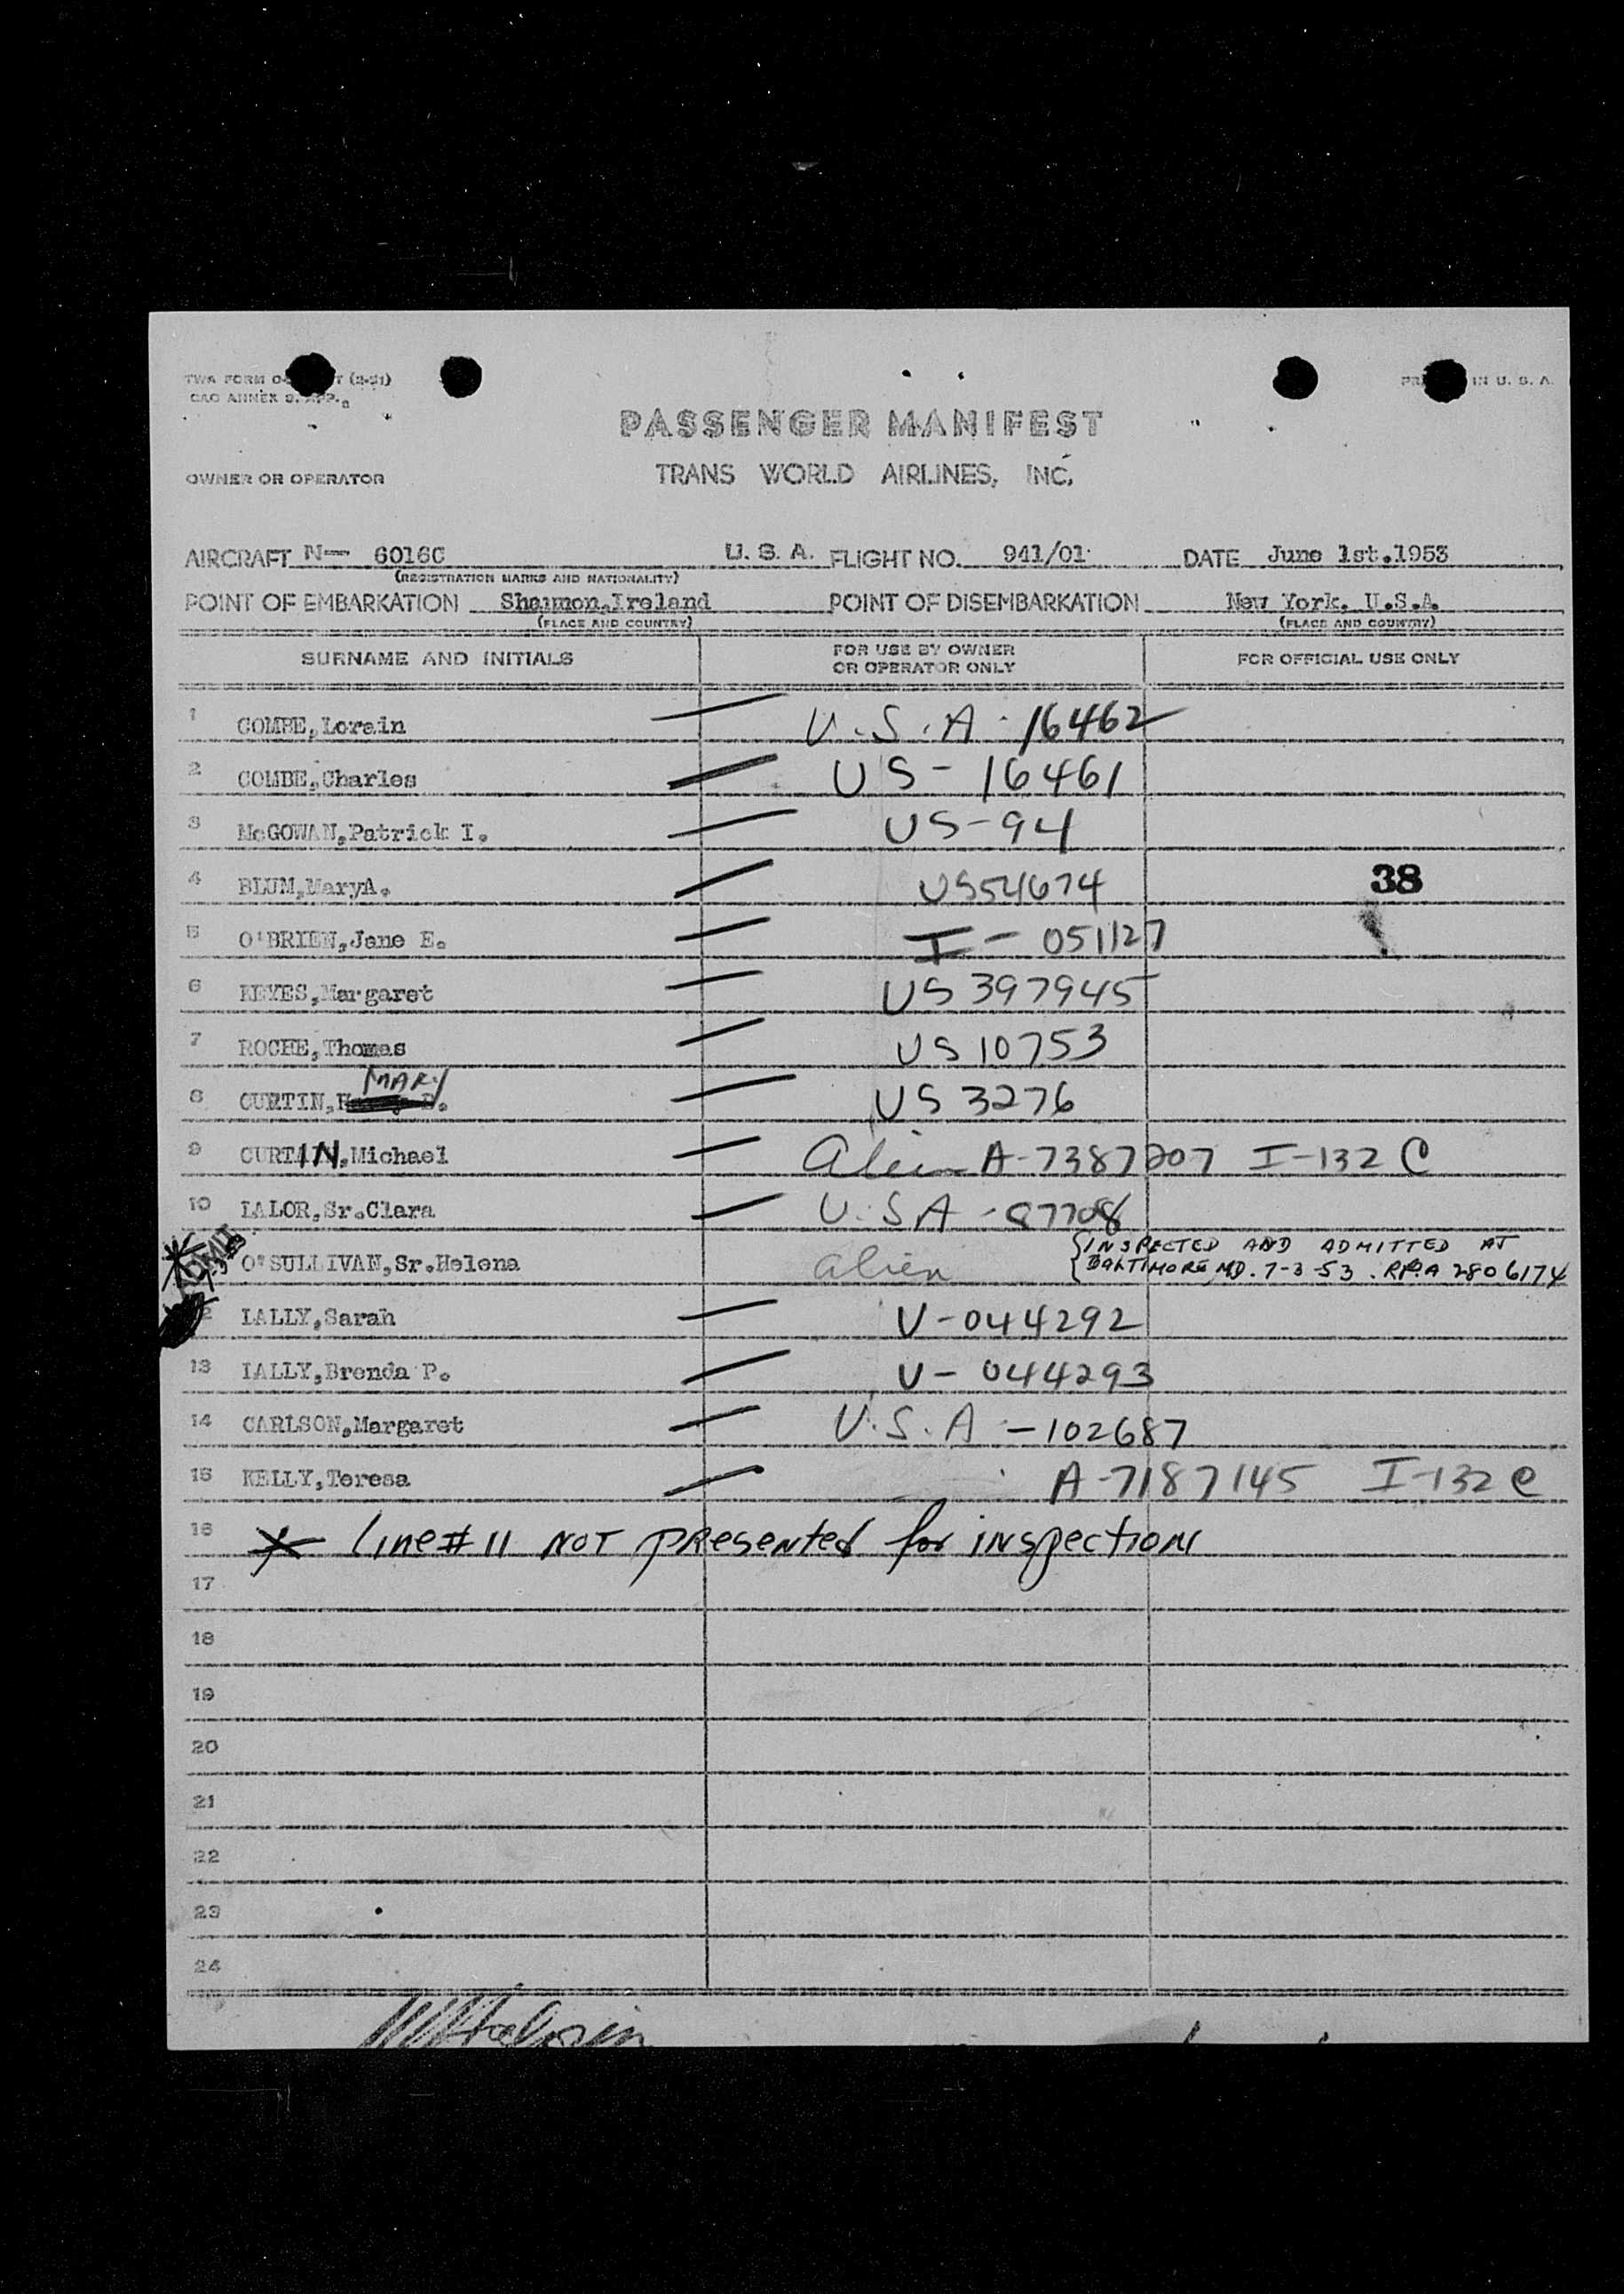 TWA FORM O- T (3-51)
CAO ANNEX 9. APP.
IN U. S. A.
PASSENGER MANIFEST
OWNER OR OPERATOR TRANS WORLD AIRLINES, INC.
AIRCRAFT N— 6016C U. S. A. FLIGHT NO. 941/01 DATE June 1st.1953
(REGISTRATION MARKS AND NATIONALITY)
POINT OF EMBARKATION Shannon,Ireland POINT OF DISEMBARKATION New York, U.S.A.
(PLACE AND COUNTRY) (PLACE AND COUNTRY)
SURNAME AND INITIALS FOR USE BY OWNER OR OPERATOR ONLY FOR OFFICIAL USE ONLY
1 COMBE,Lorain U.S.A - 16462
2 COMBE,Charles US - 16461
3 McGOWAN,Patrick I. US-94
4 BLUM,MaryA. US54674 38
5 O'BRIEN,Jane E. I - 051127
6 KEYES,Margaret US 397945
7 ROCHE,Thomas US 10753
8 CURTIN, MARY US 3276
9 CURTIN,Michael Alien A-7387207 I-132 C
10 LALOR,Sr.Clara U.S.A - 87708
ADMIT
O'SULLIVAN,Sr.Helena alien {INSPECTED AND ADMITTED AT
BALTIMORE, MD. 7-3-53. A 2806174
LALLY,Sarah V-044292
13 LALLY,Brenda P. V- 044293
14 CARLSON,Margaret U.S.A - 102687
15 KELLY,Teresa A-7187145 I-132 C
16 * Line# 11 NOT PResented for inspection
17
18
19
20
21
22
23
24